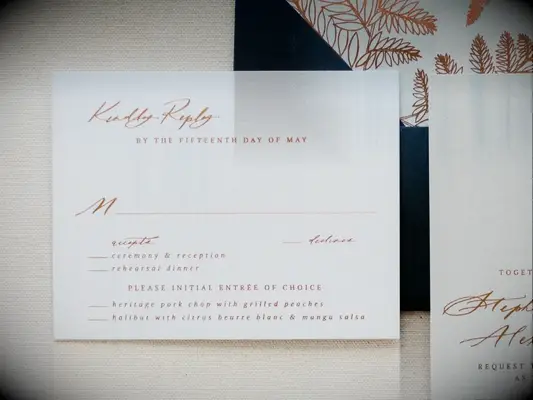 Kindly Reply
BY THE FIFTEENTH DAY OF MAY
M
accepts declines
ceremony & reception
rehearsal dinner
PLEASE INITIAL ENTRÉE OF CHOICE
heritage pork chop with grilled peaches
halibut with citrus beurre blanc & mango salsa
TOGET
Steph
Alex
REQUEST T
AS